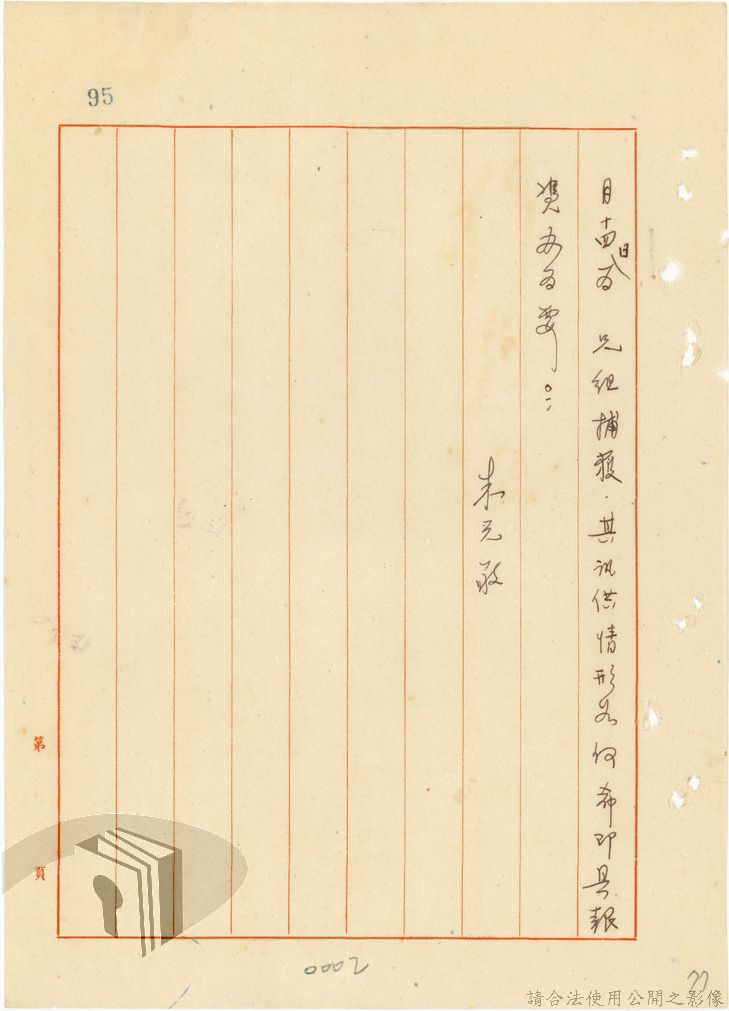 95
月十四日為　兄組捕獲．其訊供情形如何希即具報
憑辦為要。：
朱元敬
第　頁
2000
77
請合法使用公開之影像